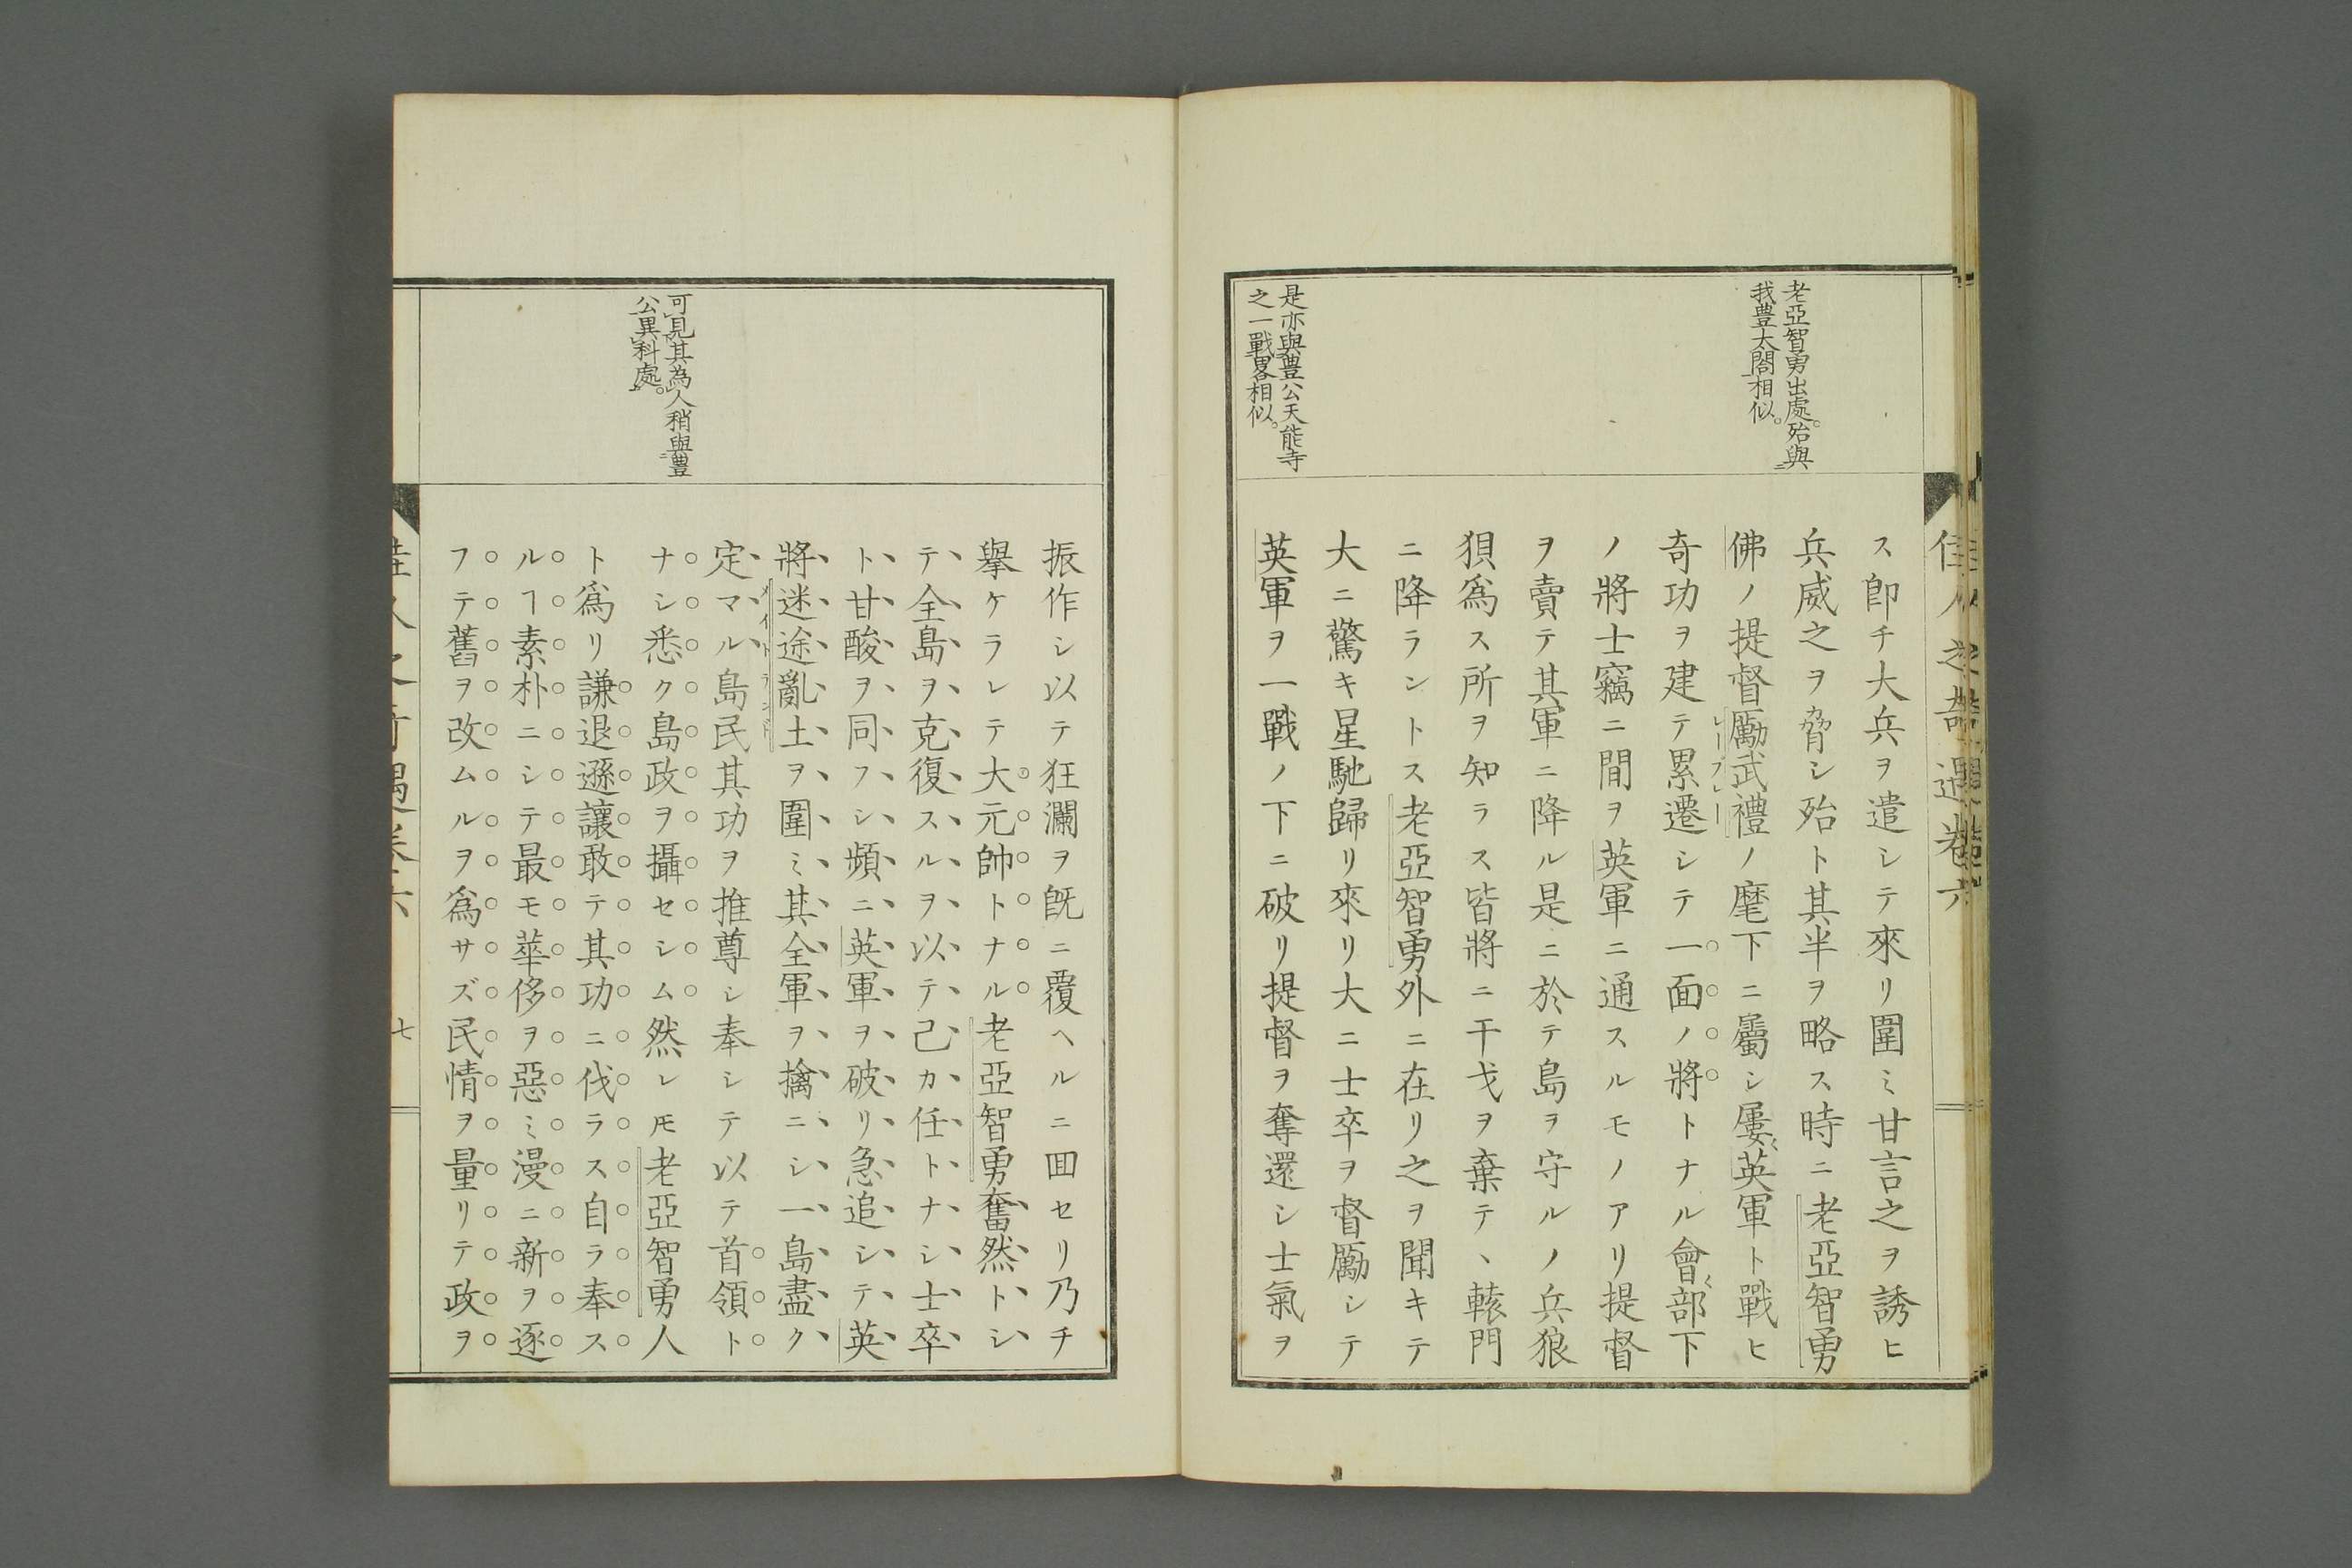 佳人之奇遇卷六
老亞智勇出處。殆與
我豊太閤相似。
是亦與豊公天能寺
之一戰畧相似。
ス卽チ大兵ヲ遣シテ來リ圍ミ甘言之ヲ誘ヒ
兵威之ヲ脅シ殆ト其半ヲ略ス時ニ老亞智勇
佛ノ提督勵武禮ノ麾下ニ屬シ屢〻英軍ト戰ヒ
レーブレー
奇功ヲ建テ累遷シテ一面ノ將トナル會〻部下
ノ將士竊ニ間ヲ英軍ニ通スルモノアリ提督
ヲ賣テ其軍ニ降ル是ニ於テ島ヲ守ルノ兵狼
狽爲ス所ヲ知ラス皆將ニ干戈ヲ棄テヽ轅門
ニ降ラントス老亞智勇外ニ在リ之ヲ聞キテ
大ニ驚キ星馳歸リ來リ大ニ士卒ヲ督勵シテ
英軍ヲ一戰ノ下ニ破リ提督ヲ奪還シ士氣ヲ
可見其為人稍與豊
公異科處。
振作シ以テ狂瀾ヲ旣ニ覆ヘルニ囬セリ乃チ
擧ケラレテ大元帥トナル老亞智勇奮然トシ
テ全島ヲ克復スルヲ以テ己カ任トナシ士卒
ト甘酸ヲ同フシ頻ニ英軍ヲ破リ急追シテ英
將迷途亂土ヲ圍ミ其全軍ヲ擒ニシ一島盡ク
メイトランド
定マル島民其功ヲ推尊シ奉シテ以テ首領ト
ナシ悉ク島政ヲ攝セシム然レ𪜈老亞智勇人
ト爲リ謙退遜讓敢テ其功ニ伐ラス自ラ奉ス
ルヿ素朴ニシテ最モ華侈ヲ惡ミ漫ニ新ヲ逐
フテ舊ヲ改ムルヲ爲サズ民情ヲ量リテ政ヲ
佳人之奇遇卷六
七